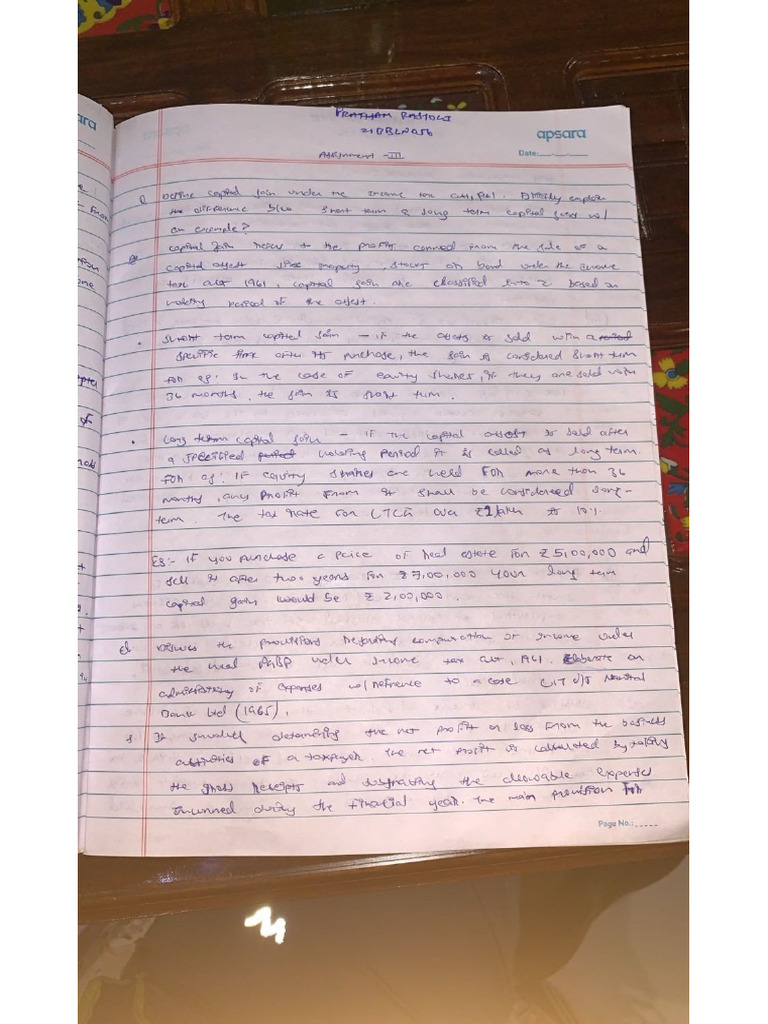 PRATHAM RASTOGI
21BBLN056
apsara
Assignment - III
Date:
Q Define capital gain under the income tax act, 1961. Briefly explain
the difference b/w short term & long term capital gains w/
an example?
capital gain refers to the profit earned from the sale of a
capital asset like property, stocks or bond under the income
tax act 1961, capital gain are classified into 2 based on
holding period of the asset.
• short term capital gain - if the assets is sold within a
specific time after its purchase, the gain is considered short term
for eg: In the case of equity shares, if they are sold within
36 months, the gain is short term.
• Long term capital gain - if the capital asset is sold after
a specified period holding period it is called as long term.
For eg: If equity shares are held for more than 36
months, any profit from it shall be considered long-
term. The tax rate for LTCG over ₹1 lakh is 10%.
Eg:- If you purchase a peice of real estate for ₹ 5,00,000 and
sell it after two years for ₹ 7,00,000 your long term
capital gain would be ₹ 2,00,000.
Q Discuss the provisions regarding computation of income under
the head PGBP under income tax act, 1961. Elaborate on
admissibility of expenses w/ reference to a case CIT v/s
Bank Ltd (1965).
It involves determining the net profit or loss from the business
activities of a taxpayer. The net profit is calculated by taking
the gross receipts and subtracting the allowable expenses
incurred during the financial year. The main provision for
Page No.: